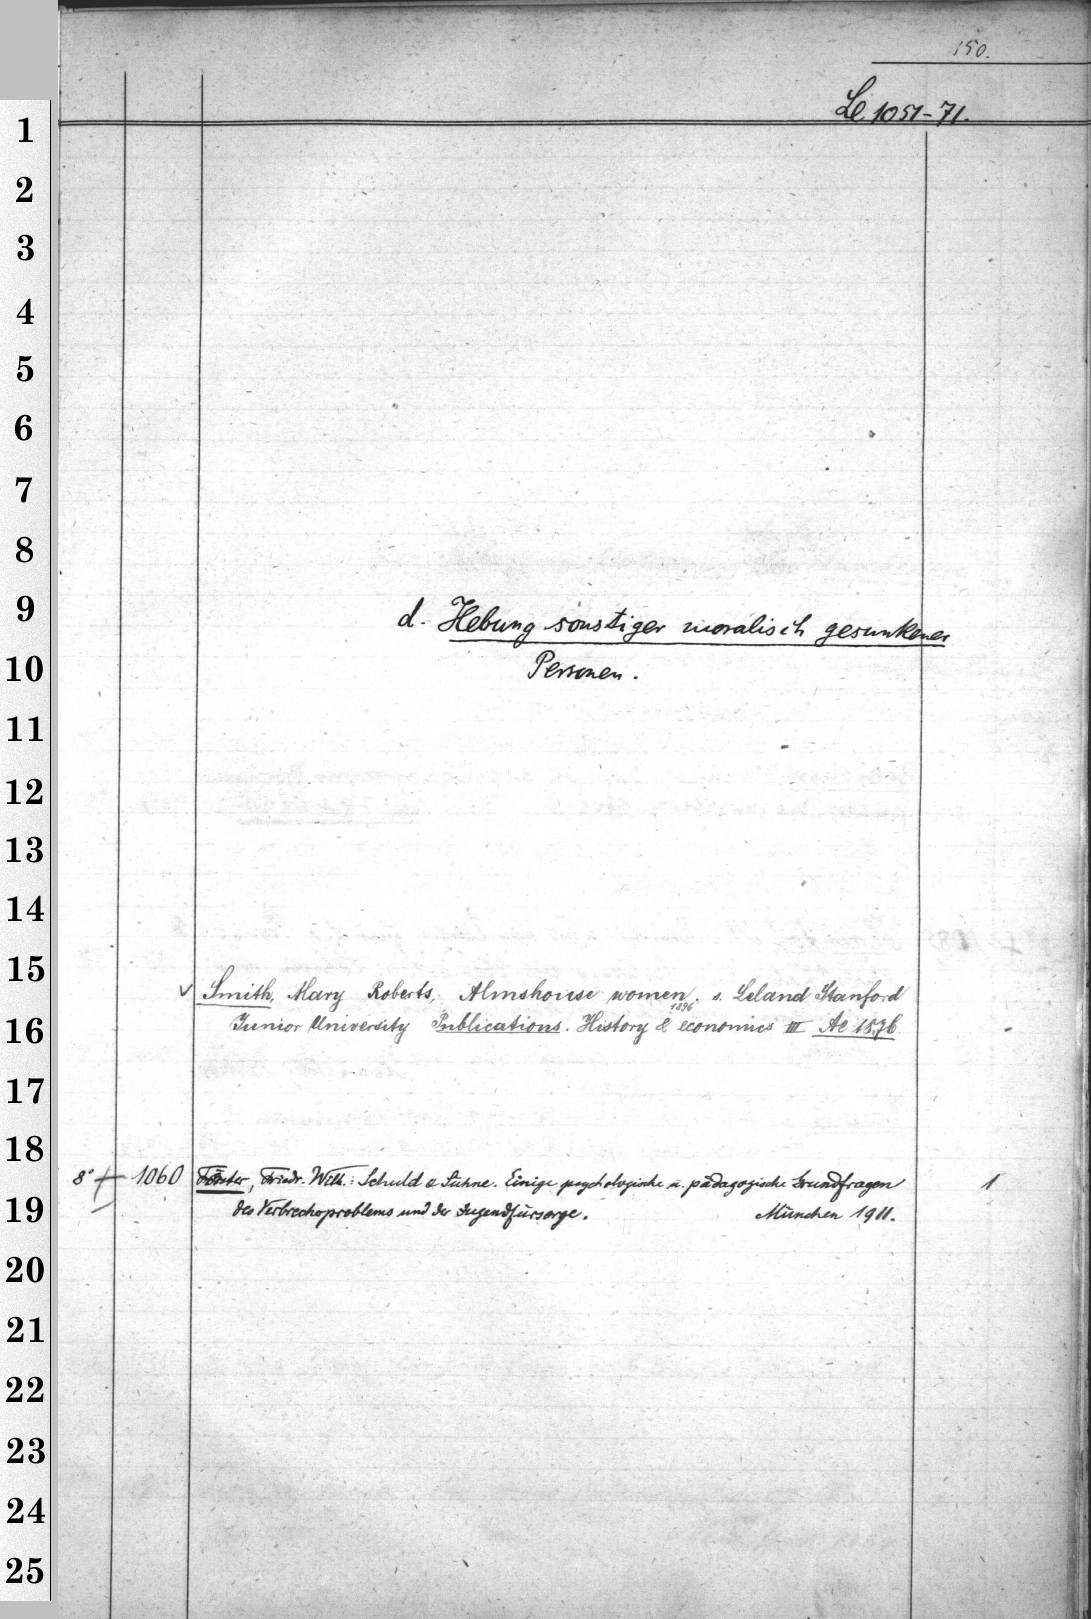 150.
Le 1051-71.
1
2
3
4
5
6
7
8
9
d. Hebung sonstiger moralisch gesunkener
10
Personen.
11
12
13
14
15
v Smith, Mary Roberts, Almshouse women. s. Leland Stanford
1896
16
Junior University Publications. History & economics III Ac 1576
17
18
8° 1060 Förster, Friedr. Wilh.: Schuld & Sühne. Einige psychologische u. pädagogische Grundfragen 1
19
des Verbrechoproblems und der Jugendfürsorge. München 1911.
20
21
22
23
24
25